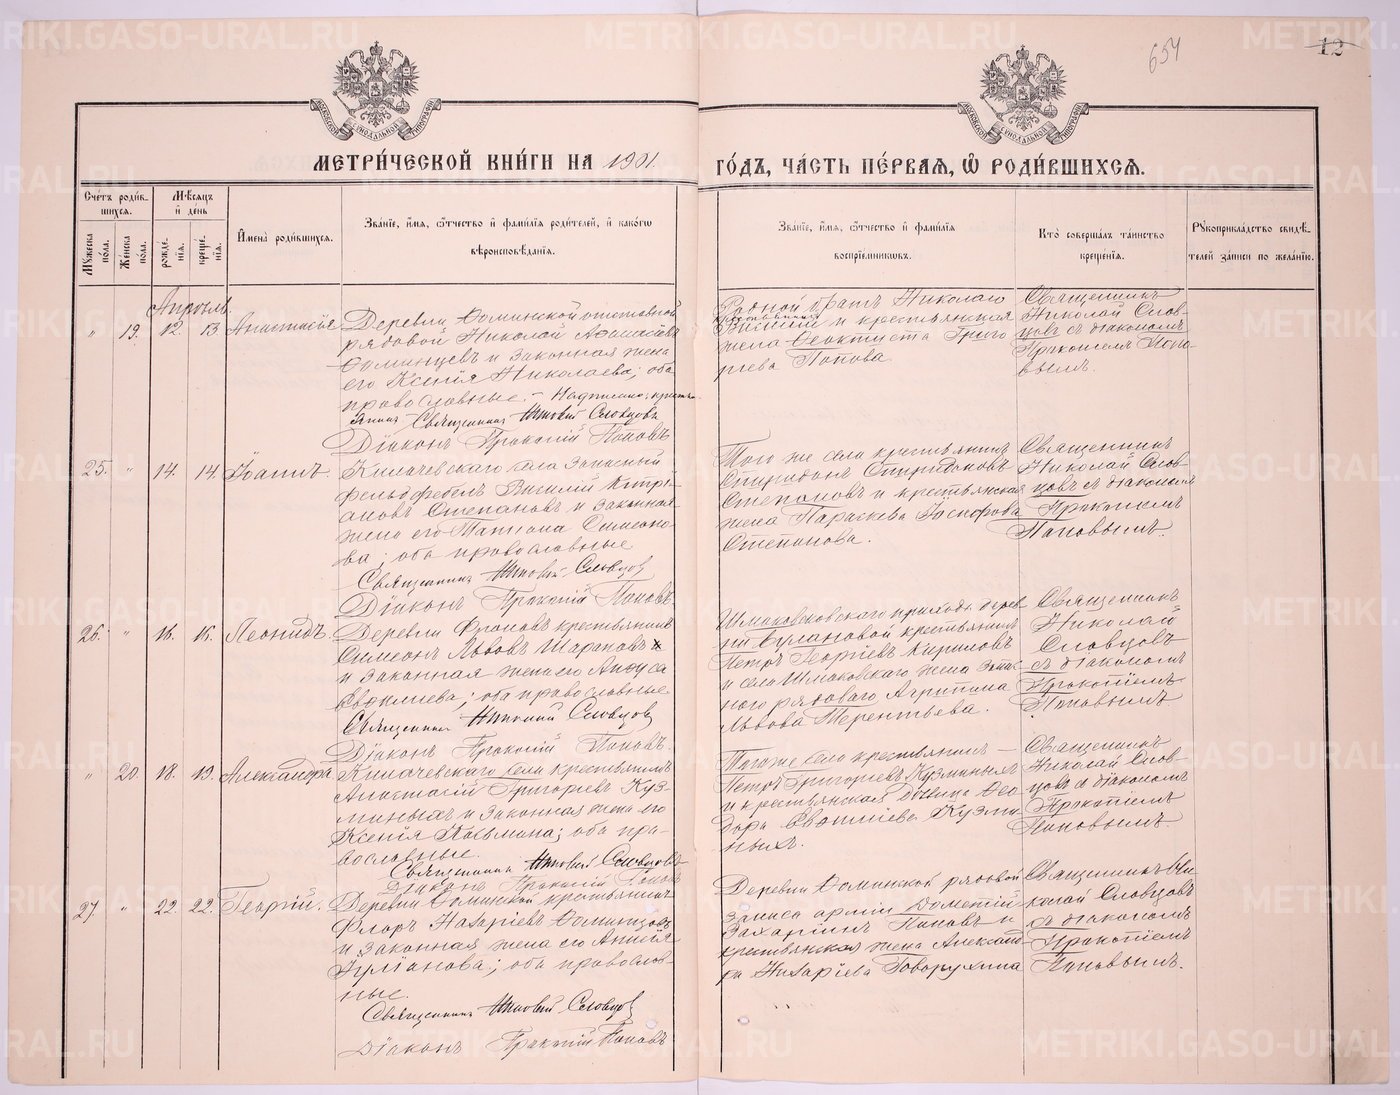 654
12
МЕТРИ́ЧЕСКОЙ КНИ́ГИ НА 1901.
ГО́ДЪ, ЧА́СТЬ ПЕ́РВАЯ, Ѡ РОДИ́ВШИХСЯ.
Сче́тъ роди́в-
шихся.
Мѣ́сяцъ
и де́нь
Мужеска по́ла.
Же́нска по́ла.
рожде-нія.
креще-нія.
И҆мена̀ роди́вшихся.
Зва́нїе, и҆́мя, ѻ҆́тчество и҆ фами́лїа роди́телей, и҆ како́гѡ
вѣроисповѣ́данїя.
Зва́нїе, и҆́мя, ѻ҆́тчество и҆ фами́лїа
воспрїе́мниковъ.
Кто̀ соверша́лъ та́инство
креще́нїя.
Рукоприкла́дство свидѣ́-
телей за́писи по жела́нїю.
Апрѣль
" 19. 12. 13. Анастасія
Деревни Ѳоминской отставной
рядовой Николай Аѳанасіевъ
Ѳоминцевъ и законная жена
его Ксенія Николаева; оба
православные. – Надписано: кресть-
янин Священникъ Николай Словцовъ
Діаконъ Прокопій Поповъ
Родной братъ Николаю
и крестьянская
жена Ѳеоктиста Григо
рьева Попова.
Священникъ
Николай Слов-
цовъ съ діакономъ
Прокопіемъ Попо-
вымъ.
25. " 14. 14. Іоаннъ.
Киргачевскаго села запасный
фельдфебель Василій Кипрі-
ановъ Степановъ и законная
жена его Татіана Симеоно-
ва; оба православные
Священникъ Николай Словцовъ
Діаконъ Прокопій Поповъ
Того же села крестьянинъ
Спиридонъ Спиридоновъ
Степановъ и крестьянская
жена Параскева Никифорова
Степанова.
Священникъ
Николай Слов-
цовъ съ діакономъ
Прокопіемъ
Поповымъ.
26. " 16. 16. Леонидъ.
Деревни Фроновъ крестьянинъ
Симеонъ Львовъ Шараповъ
и законная жена его Анфуса
оба православные
Священникъ Николай Словцовъ
Діаконъ Прокопій Поповъ.
Шмаковсковскаго прихода дерев
ни Булановой крестьянинъ
Петръ Георгіевъ Кириловъ
и села Шмаковскаго жена запас
ного рядоваго Агрипина
Львова Терентьева.
Священникъ
Николай
Словцовъ
съ діакономъ
Прокопіемъ
Поповымъ
" 20. 18. 19. Александра
Киргачевскаго села крестьянинъ
Анастасій Григоріевъ Куз-
миныхъ и законная жена его
Ксенія Козьмина; оба пра-
вославные.
Священникъ Николай Словцовъ
Діаконъ Прокопій Поповъ
Того же село крестьянинъ –
Петръ Григоріевъ Кузминыхъ
и крестьянская дѣвица Ѳео
дора Кузми
ныхъ.
Священникъ
Николай Слов-
цовъ съ діакономъ
Прокопіемъ
Поповымъ.
27 " 22. 22. Георгій.
Деревни Ѳоминской крестьянинъ
Флоръ Назаріевъ Ѳоминцовъ
и законная жена его Анисія
Іуліанова; оба православ-
ные.
Священникъ Николай Словцовъ
Діаконъ Прокопій Поповъ
Деревни Ѳоминской рядовой
запаса арміи Дометій
Захаріинъ Поповъ и
крестьянская жена Александ
ра Назаріева Говорухина
Священникъ Ни-
колай Словцовъ
съ діакономъ
Прокопіемъ
Поповымъ.